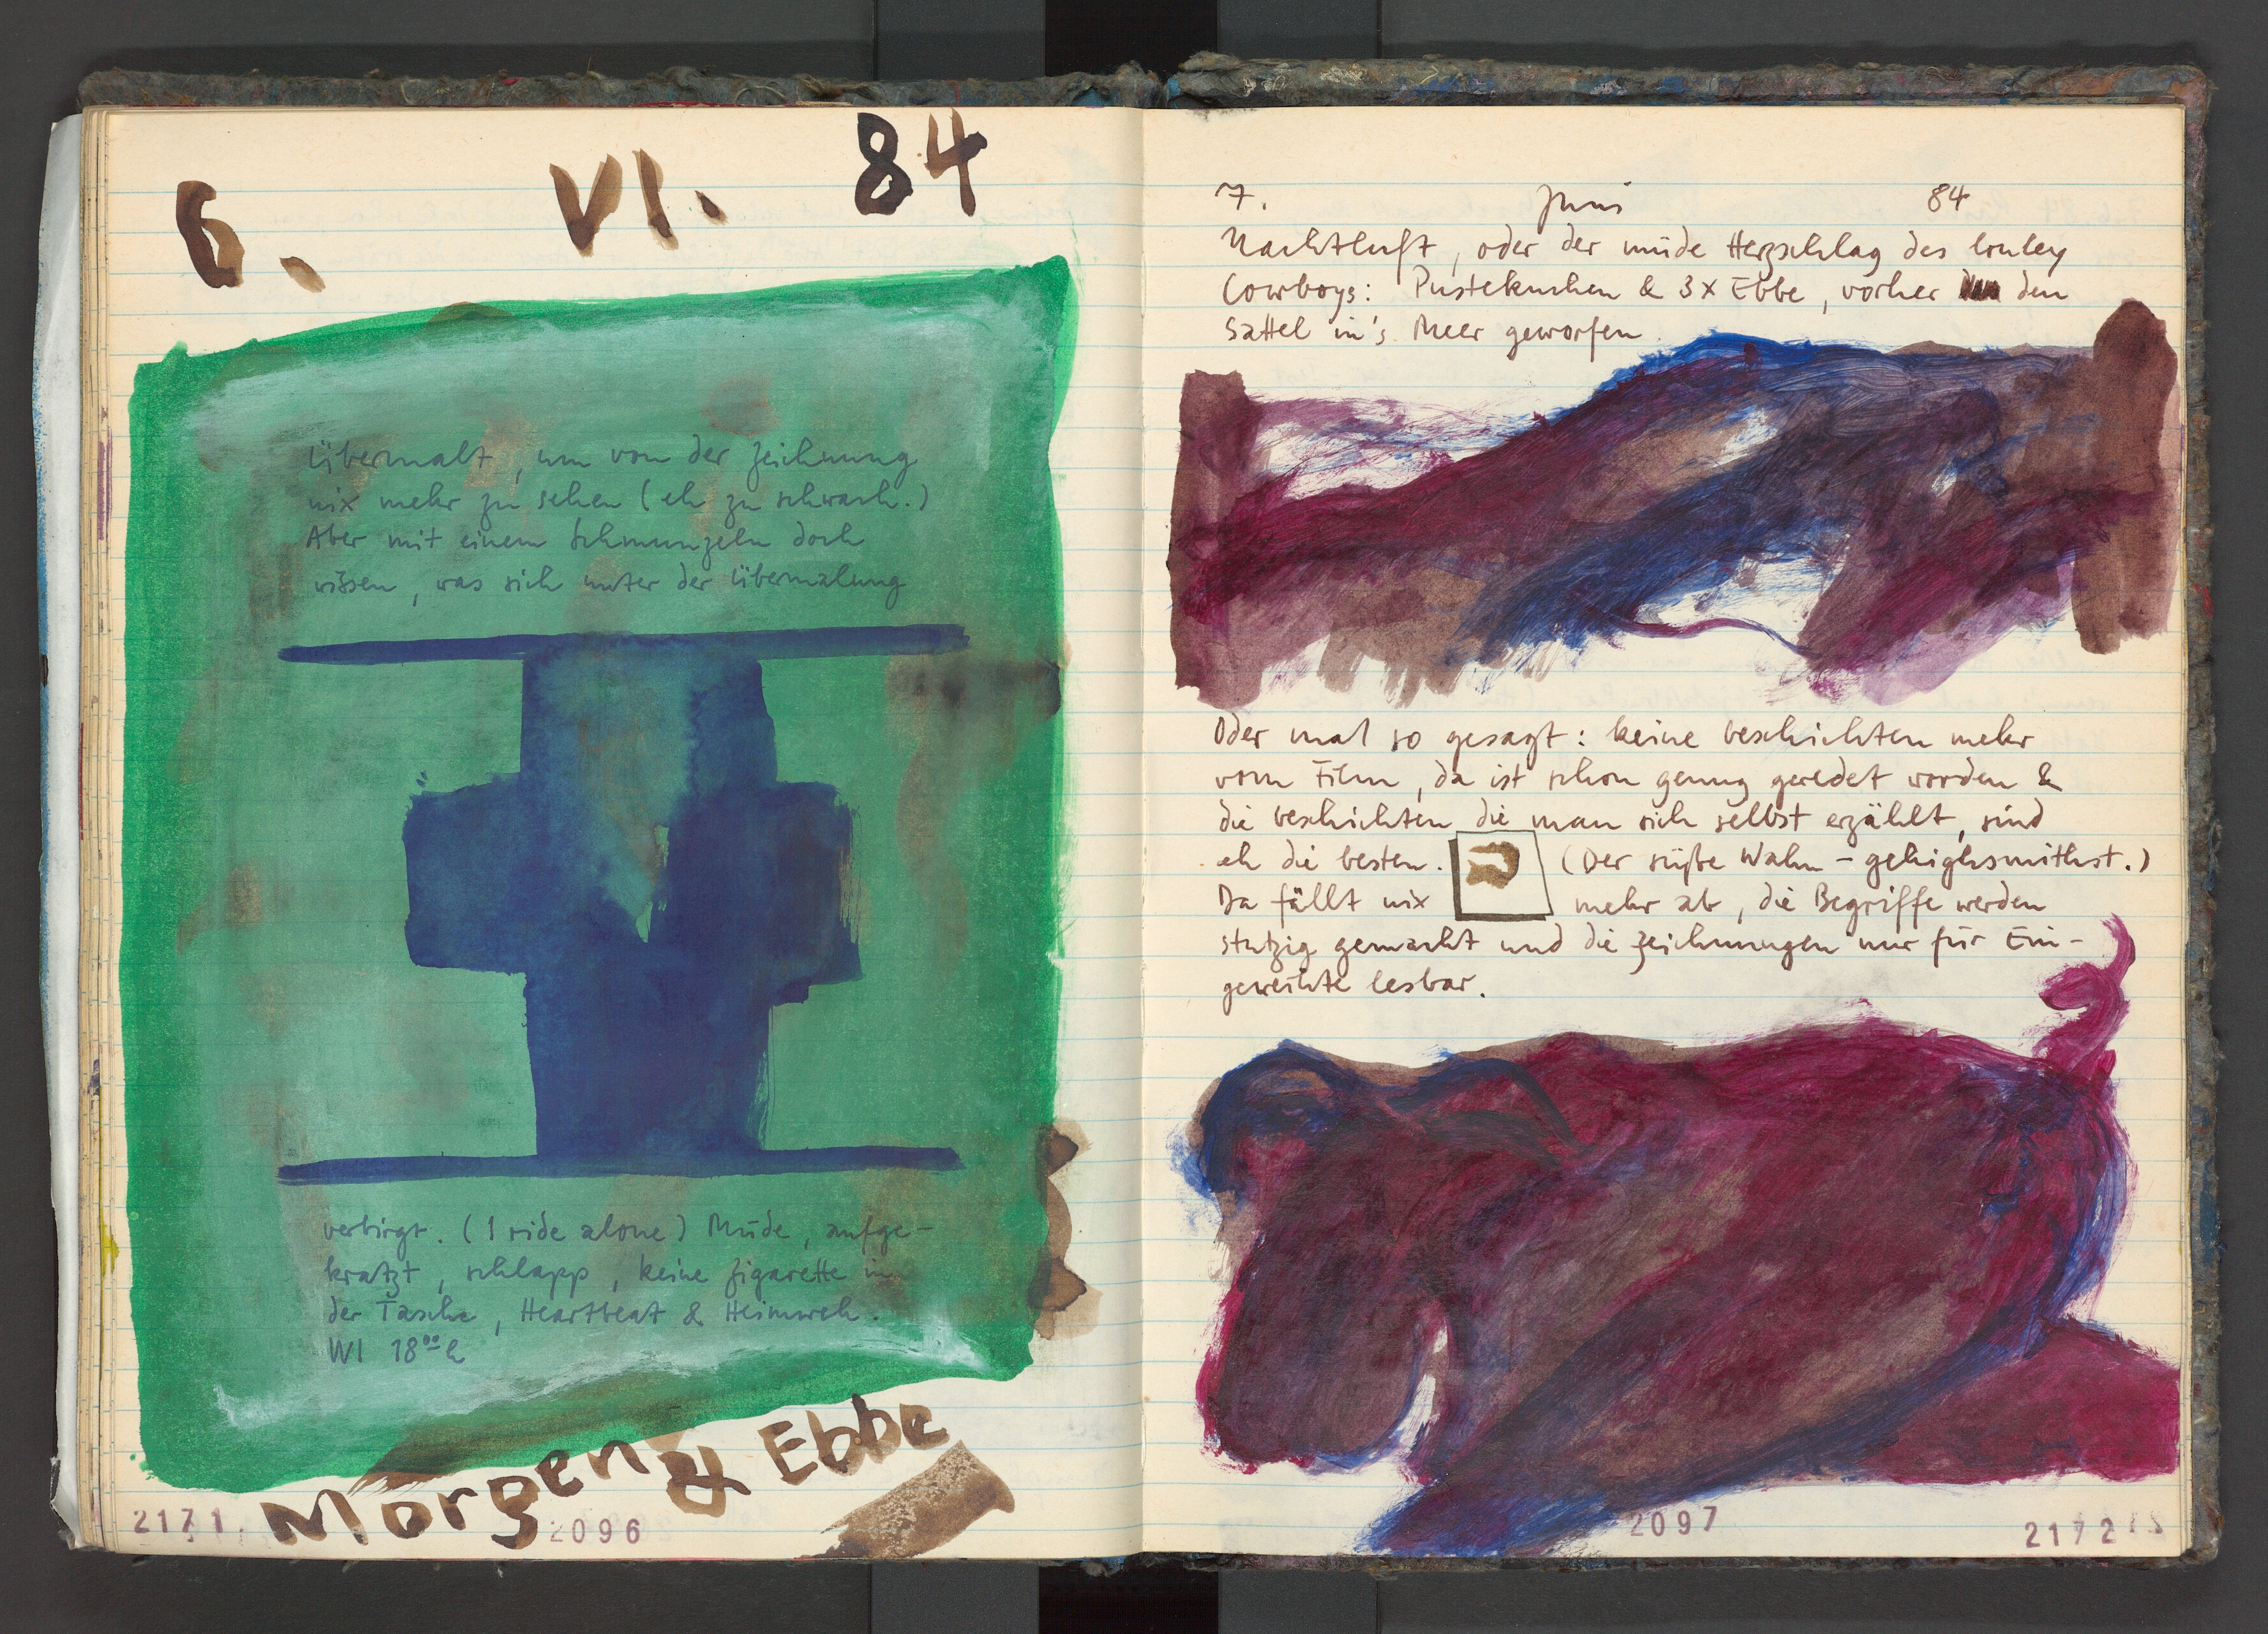 6. VI. 84
Übermalt, um von der Zeichnung
nix mehr zu sehen (eh zu schwach.)
Aber mit einem Schmunzeln doch
wissen, was sich unter der Übermalung
verbirgt. (I ride alone) Müde, aufge-
kratzt, schlapp, keine Zigarette in
der Tasche, Heartbeat & Heimweh.
WI 18⁰⁰ h
Morgen & Ebbe
2171
2096
7. Juni 84
Nachtluft, oder der müde Herzschlag des lonley
Cowboys: Pustekuchen & 3x Ebbe, vorher den
Sattel in's Meer geworfen.
Oder mal so gesagt: keine Geschichten mehr
vom Film, da ist schon genug geredet worden &
die Geschichten die man sich selbst erzählt, sind
eh die besten. (Der süße Wahn – gehighsmithst.)
Da fällt nix mehr ab, die Begriffe werden
stutzig gemacht und die Zeichnungen nur für Ein-
geweihte lesbar.
2097
2172